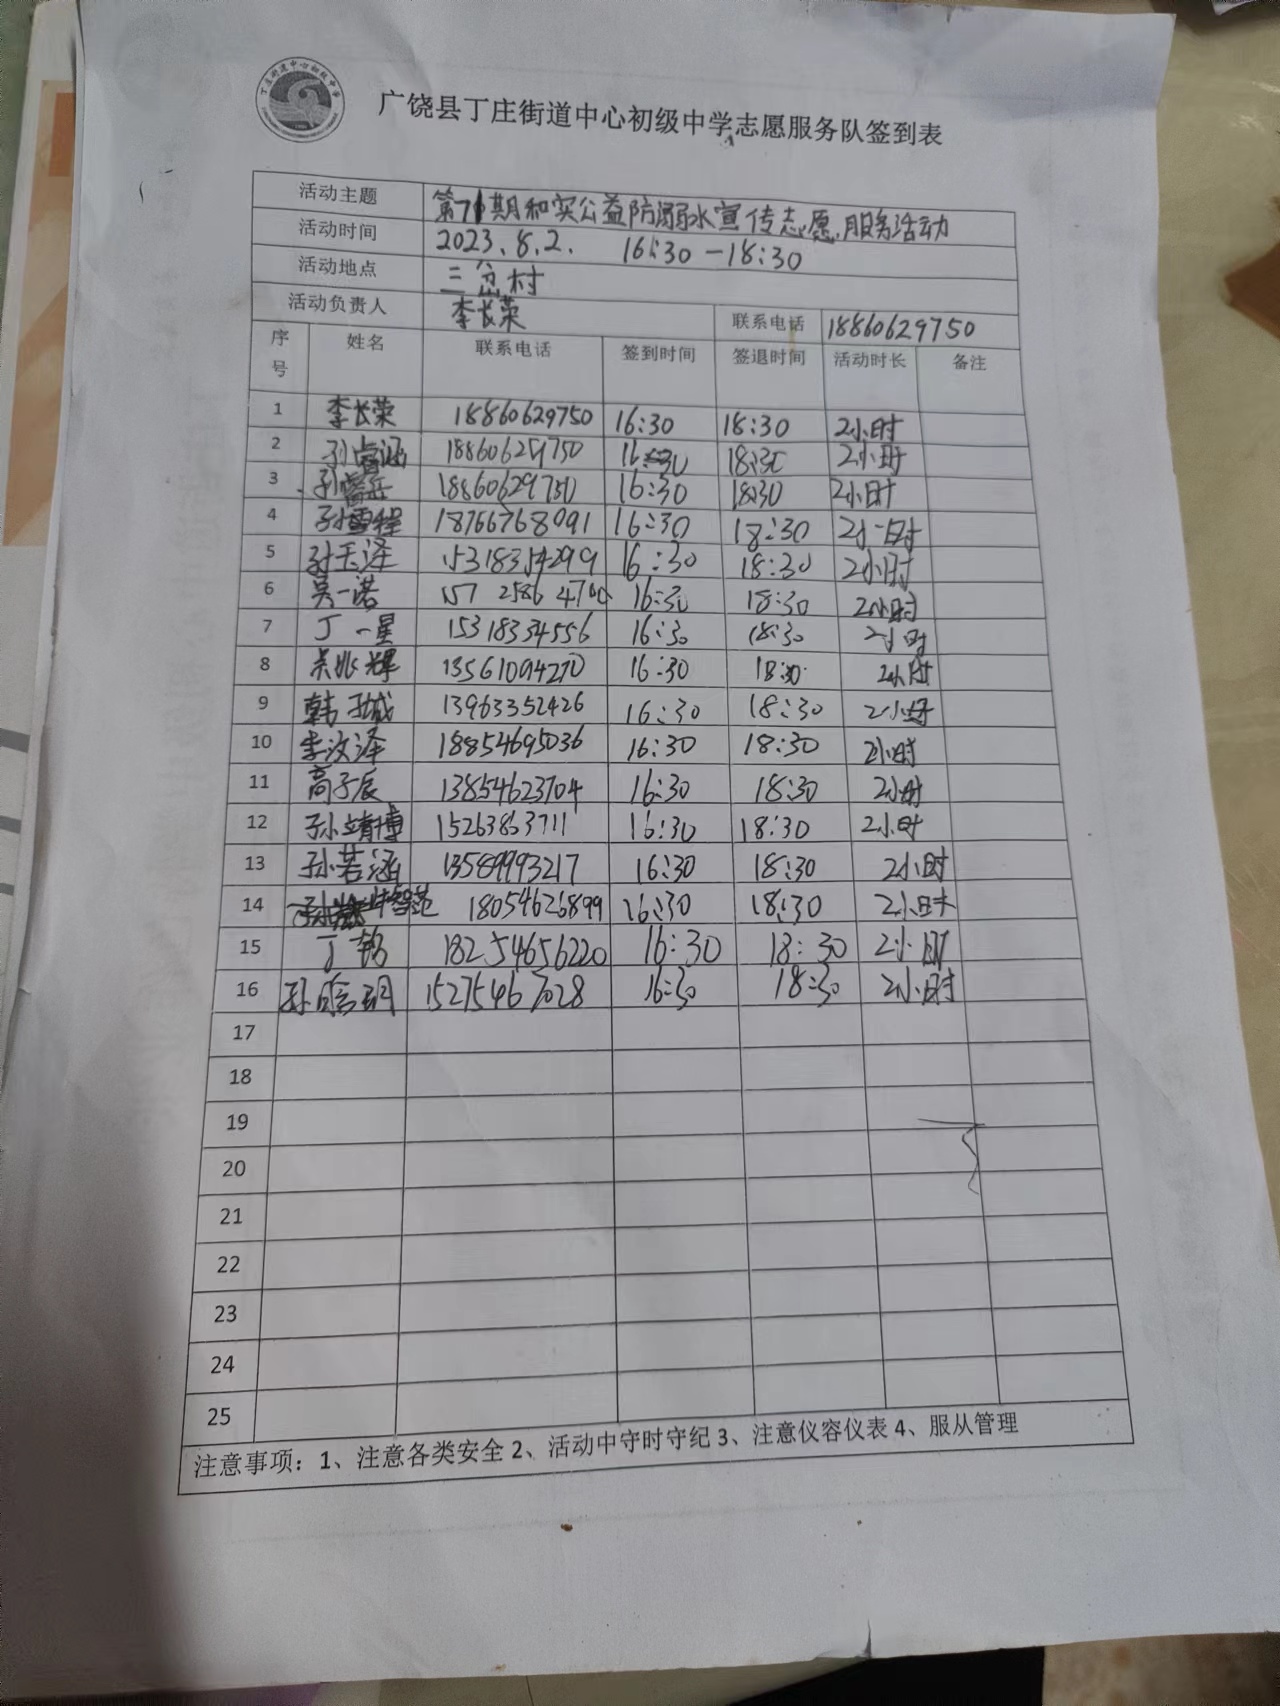 丁庄街道中心初级中学
广饶县丁庄街道中心初级中学志愿服务队签到表
活动主题 第71期和实公益防溺水宣传志愿服务活动
活动时间 2023.8.2. 16:30-18:30
活动地点 三岔村
活动负责人 李长荣 联系电话 18860629750
序号 姓名 联系电话 签到时间 签退时间 活动时长 备注
1 李长荣 18860629750 16:30 18:30 2小时
2 孙睿涵 18860629750 16:30 18:30 2小时
3 18860629750 16:30 18:30 2小时
4 孙雪程 18766768091 16:30 18:30 2小时
5 孙玉泽 15318354299 16:30 18:30 2小时
6 吴一诺 157 2586 4700 16:30 18:30 2小时
7 丁一星 15318334556 16:30 18:30 2小时
8 吴兆辉 13561094270 16:30 18:30 2小时
9 韩子城 13963352426 16:30 18:30 2小时
10 李汶泽 18854695036 16:30 18:30 2小时
11 高子辰 13854623704 16:30 18:30 2小时
12 孙靖博 15263863711 16:30 18:30 2小时
13 孙若涵 13589993217 16:30 18:30 2小时
14 18054626899 16:30 18:30 2小时
15 丁铭 18254656220 16:30 18:30 2小时
16 孙晗玥 15275467028 16:30 18:30 2小时
17
18
19
20
21
22
23
24
25
注意事项：1、注意各类安全 2、活动中守时守纪 3、注意仪容仪表 4、服从管理